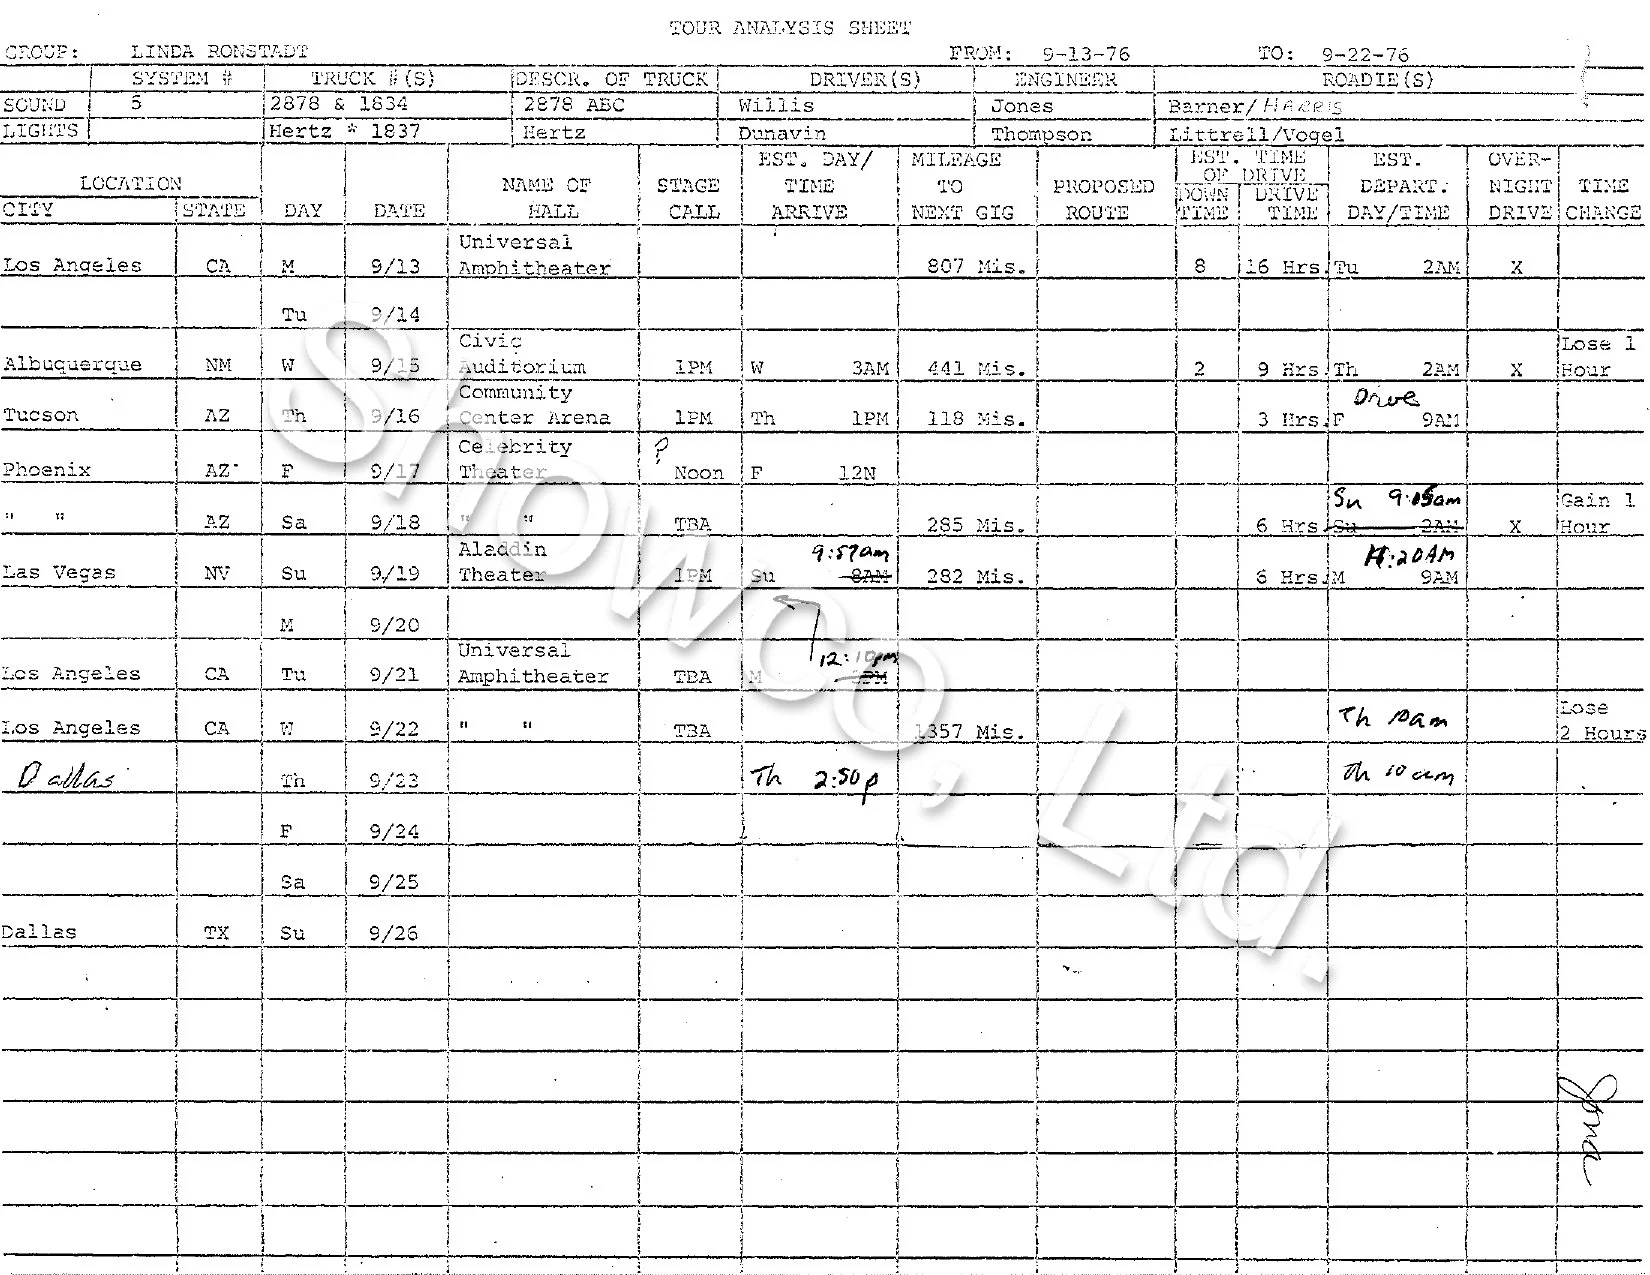 TOUR ANALYSIS SHEET
GROUP: LINDA RONSTADT FROM: 9-13-76 TO: 9-22-76
SYSTEM # TRUCK #(S) DESCR. OF TRUCK DRIVER(S) ENGINEER ROADIE(S)
SOUND 5 2878 & 1834 2878 ABC Willis Jones Barner/HARRIS
LIGHTS Hertz * 1837 Hertz Dunavin Thompson Littrell/Vogel
LOCATION
CITY STATE DAY DATE NAME OF HALL STAGE CALL EST. DAY/ TIME ARRIVE MILEAGE TO NEXT GIG PROPOSED ROUTE EST. TIME OF DRIVE DOWN TIME DRIVE TIME EST. DEPART. DAY/TIME OVER- NIGHT DRIVE TIME CHANGE
Los Angeles CA M 9/13 Universal Amphitheater 807 Mis. 8 16 Hrs. Tu 2AM X
Tu 9/14
Albuquerque NM W 9/15 Civic Auditorium 1PM W 3AM 441 Mis. 2 9 Hrs. Th 2AM X Lose 1 Hour
Tucson AZ Th 9/16 Community Center Arena 1PM Th 1PM 118 Mis. 3 Hrs. Drive F 9AM
Phoenix AZ F 9/17 Celebrity Theater ? Noon F 12N
" " AZ Sa 9/18 " " TBA 285 Mis. 6 Hrs. Su 9:05am Su 2AM X Gain 1 Hour
Las Vegas NV Su 9/19 Aladdin Theater 1PM Su 9:57am 8AM 282 Mis. 6 Hrs. M 11:20AM 9AM
M 9/20
Los Angeles CA Tu 9/21 Universal Amphitheater TBA M 12:10pm
Los Angeles CA W 9/22 " " TBA 1357 Mis. Th 10am Lose 2 Hours
Dallas Th 9/23 Th 2:50p Th 10am
F 9/24
Sa 9/25
Dallas TX Su 9/26
Showco, Ltd.